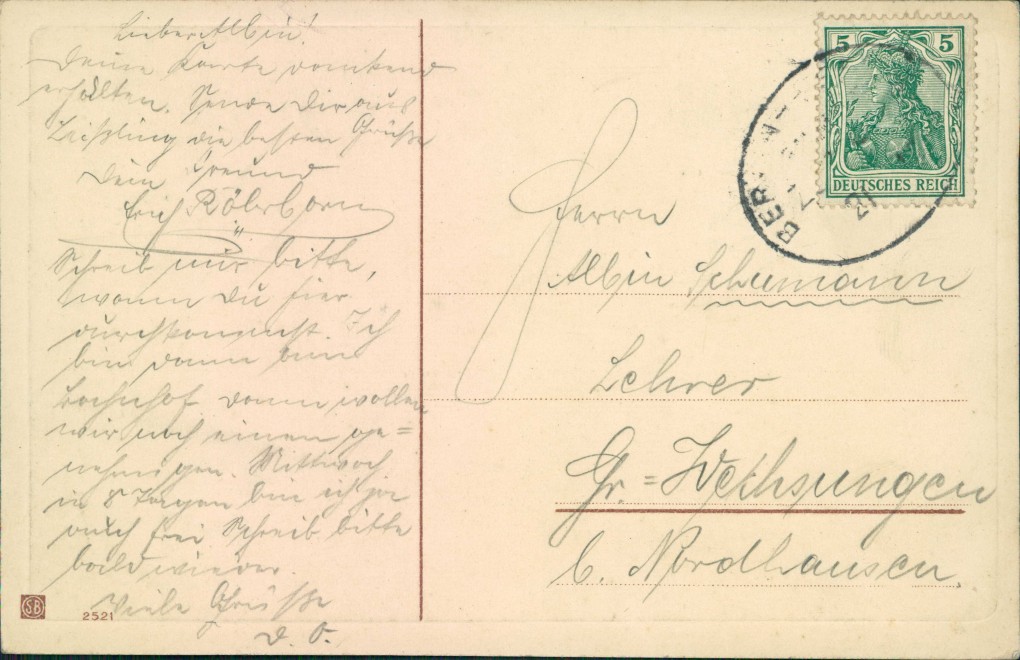 Lieber Albin!
Deine Karte dankend
erhalten. Sende Dir aus
die besten Grüße
Dein Freund
Erich Röhrborn
Schreib mir bitte,
wann Du hier
durchkommst. Ich
bin dann am
Bahnhof dann wollen
wir noch einen ge=
nehmigen. Mittwoch
in 8 Tagen bin ich ja
auch frei Schreib bitte
bald wieder.
Viele Grüße
D. O.
SB
2521
5 5
DEUTSCHES REICH
BER
Herrn
Albin Schumann
Lehrer
Gr=Wechsungen
b. Nordhausen.